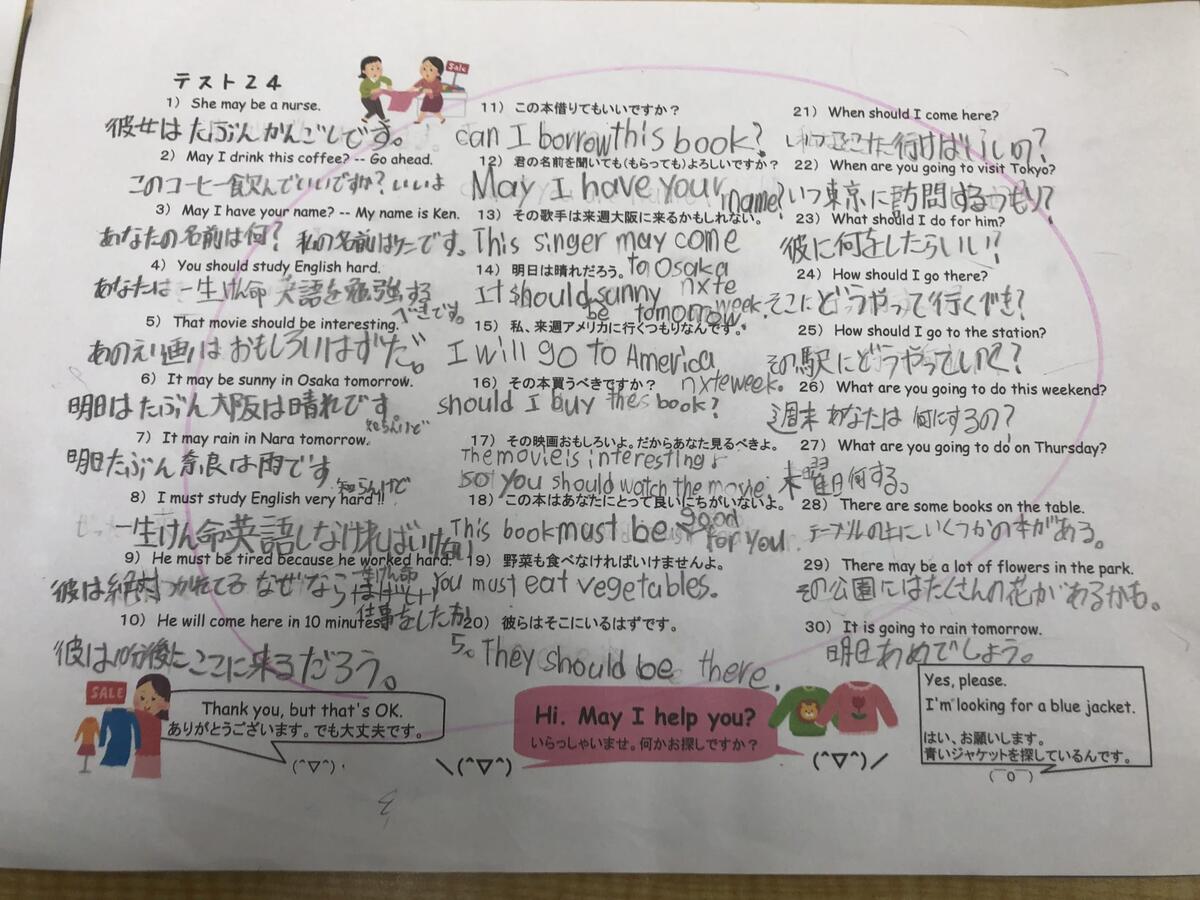 テスト24
1) She may be a nurse.
彼女は たぶん かんごしです。
2) May I drink this coffee? -- Go ahead.
このコーヒー飲んでいいですか? いいよ
3) May I have your name? -- My name is Ken.
あなたの名前は何? 私の名前はケンです。
4) You should study English hard.
あなたは 一生けん命 英語を勉強する
べきです。
5) That movie should be interesting.
あのえい画は おもしろいはずだ。
6) It may be sunny in Osaka tomorrow.
明日は たぶん 大阪は晴れです。
知らんけど
7) It may rain in Nara tomorrow.
明日たぶん 奈良は雨です
知らんけど
8) I must study English very hard !!
一生けん命英語しなければいけない
9) He must be tired because he worked hard.
彼は絶対 つかれてる なぜなら
一生けん命
仕事をしたから
10) He will come here in 10 minutes.
彼は10分後にここに来るだろう。
11) この本借りてもいいですか?
can I borrow this book?
12) 君の名前を聞いても(もらっても)よろしいですか?
May I have your name?
13) その歌手は来週大阪に来るかもしれない。
This singer may come
to Osaka
nxte
week.
14) 明日は晴れだろう。
It should sunny
be tomorrow
15) 私、来週アメリカに行くつもりなんです。
I will go to America
nxte week.
16) その本買うべきですか?
should I buy thes book?
17) その映画おもしろいよ。だからあなた見るべきよ。
The movie is interesting,
so you should watch the movie.
18) この本はあなたにとって良いにちがいないよ。
This book must be good
for you
19) 野菜も食べなければいけませんよ。
you must eat vegetables.
20) 彼らはそこにいるはずです。
5. They should be there.
21) When should I come here?
いつ ここに 行けばいいの?
22) When are you going to visit Tokyo?
いつ東京に訪問するつもり?
23) What should I do for him?
彼に何をしたらいい!?
24) How should I go there?
そこにどうやって行くべき?
25) How should I go to the station?
その駅にどうやっていく?
26) What are you going to do this weekend?
週末 あなたは 何にするの?
27) What are you going to do on Thursday?
木曜日何する。
28) There are some books on the table.
テーブルの上に いくつかの本がある。
29) There may be a lot of flowers in the park.
その公園にはたくさんの花が あるかも。
30) It is going to rain tomorrow.
明日あめでしょう。
Sale
SALE
Thank you, but that's OK.
ありがとうございます。でも大丈夫です。
(^∇^)
Hi. May I help you?
いらっしゃいませ。何かお探しですか?
\(^∇^)
(^∇^)/
Yes, please.
I'm looking for a blue jacket.
はい、お願いします。
青いジャケットを探しているんです。
(￣o￣)